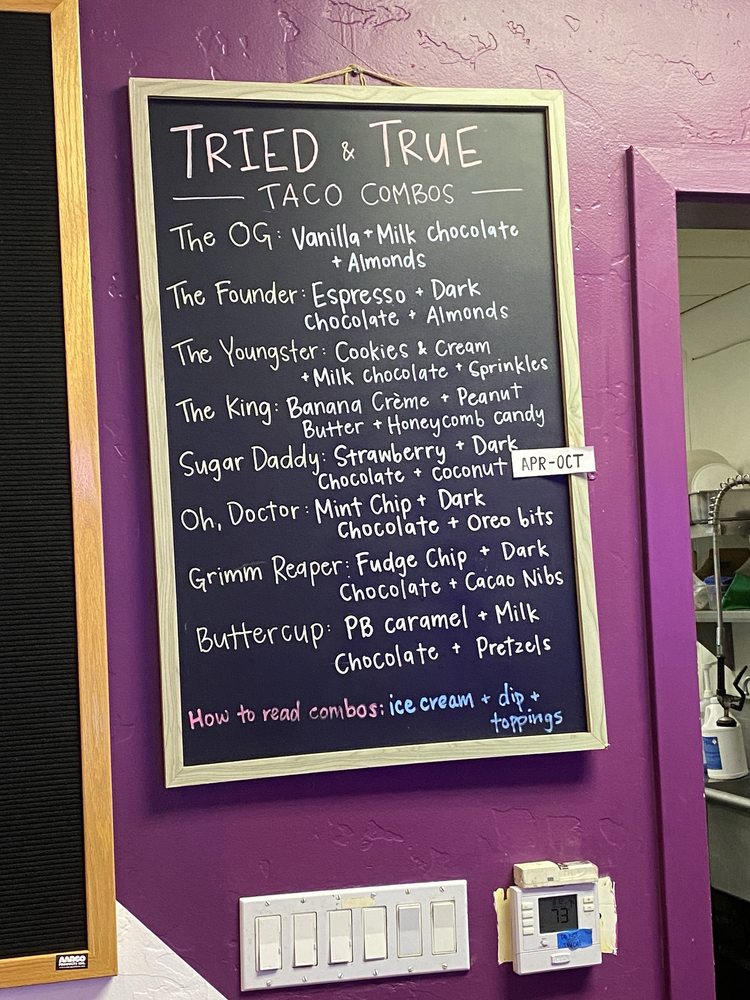 TRIED & TRUE
TACO COMBOS
The OG: Vanilla + Milk chocolate
+ Almonds
The Founder: Espresso + Dark
chocolate + Almonds
The Youngster: Cookies & Cream
+ Milk chocolate + Sprinkles
The King: Banana Crème + Peanut
Butter + Honeycomb candy
Sugar Daddy: Strawberry + Dark
Chocolate + coconut
APR-OCT
Oh, Doctor: Mint Chip + Dark
Chocolate + Oreo bits
Grimm Reaper: Fudge Chip + Dark
Chocolate + Cacao Nibs
Buttercup: PB caramel + Milk
Chocolate + Pretzels
How to read combos: ice cream + dip +
toppings
73
AARCO